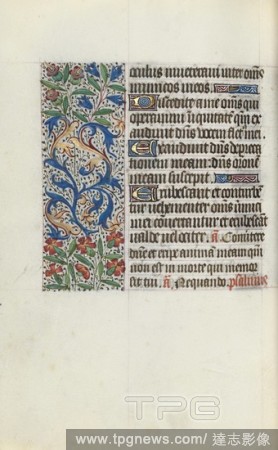 oculus inveteravi inter oms
inimicos meos.
Discedite a me oms qui
operamini iniquitatem qm ex
audivit dns vocem fletus mei.
Exaudivit dns depreca
tionem meam dns orone
meam suscepit.
Erubescant et conturbe
tur vehementer oms inimi
ci mei convertantur et erubescant
valde velociter. a. Convertere
dne et eripe animam meam qm
non est in morte qui memor
sit tui. a. Nequando. psalmus
TPG
www.tpgnews.com / 達志影像